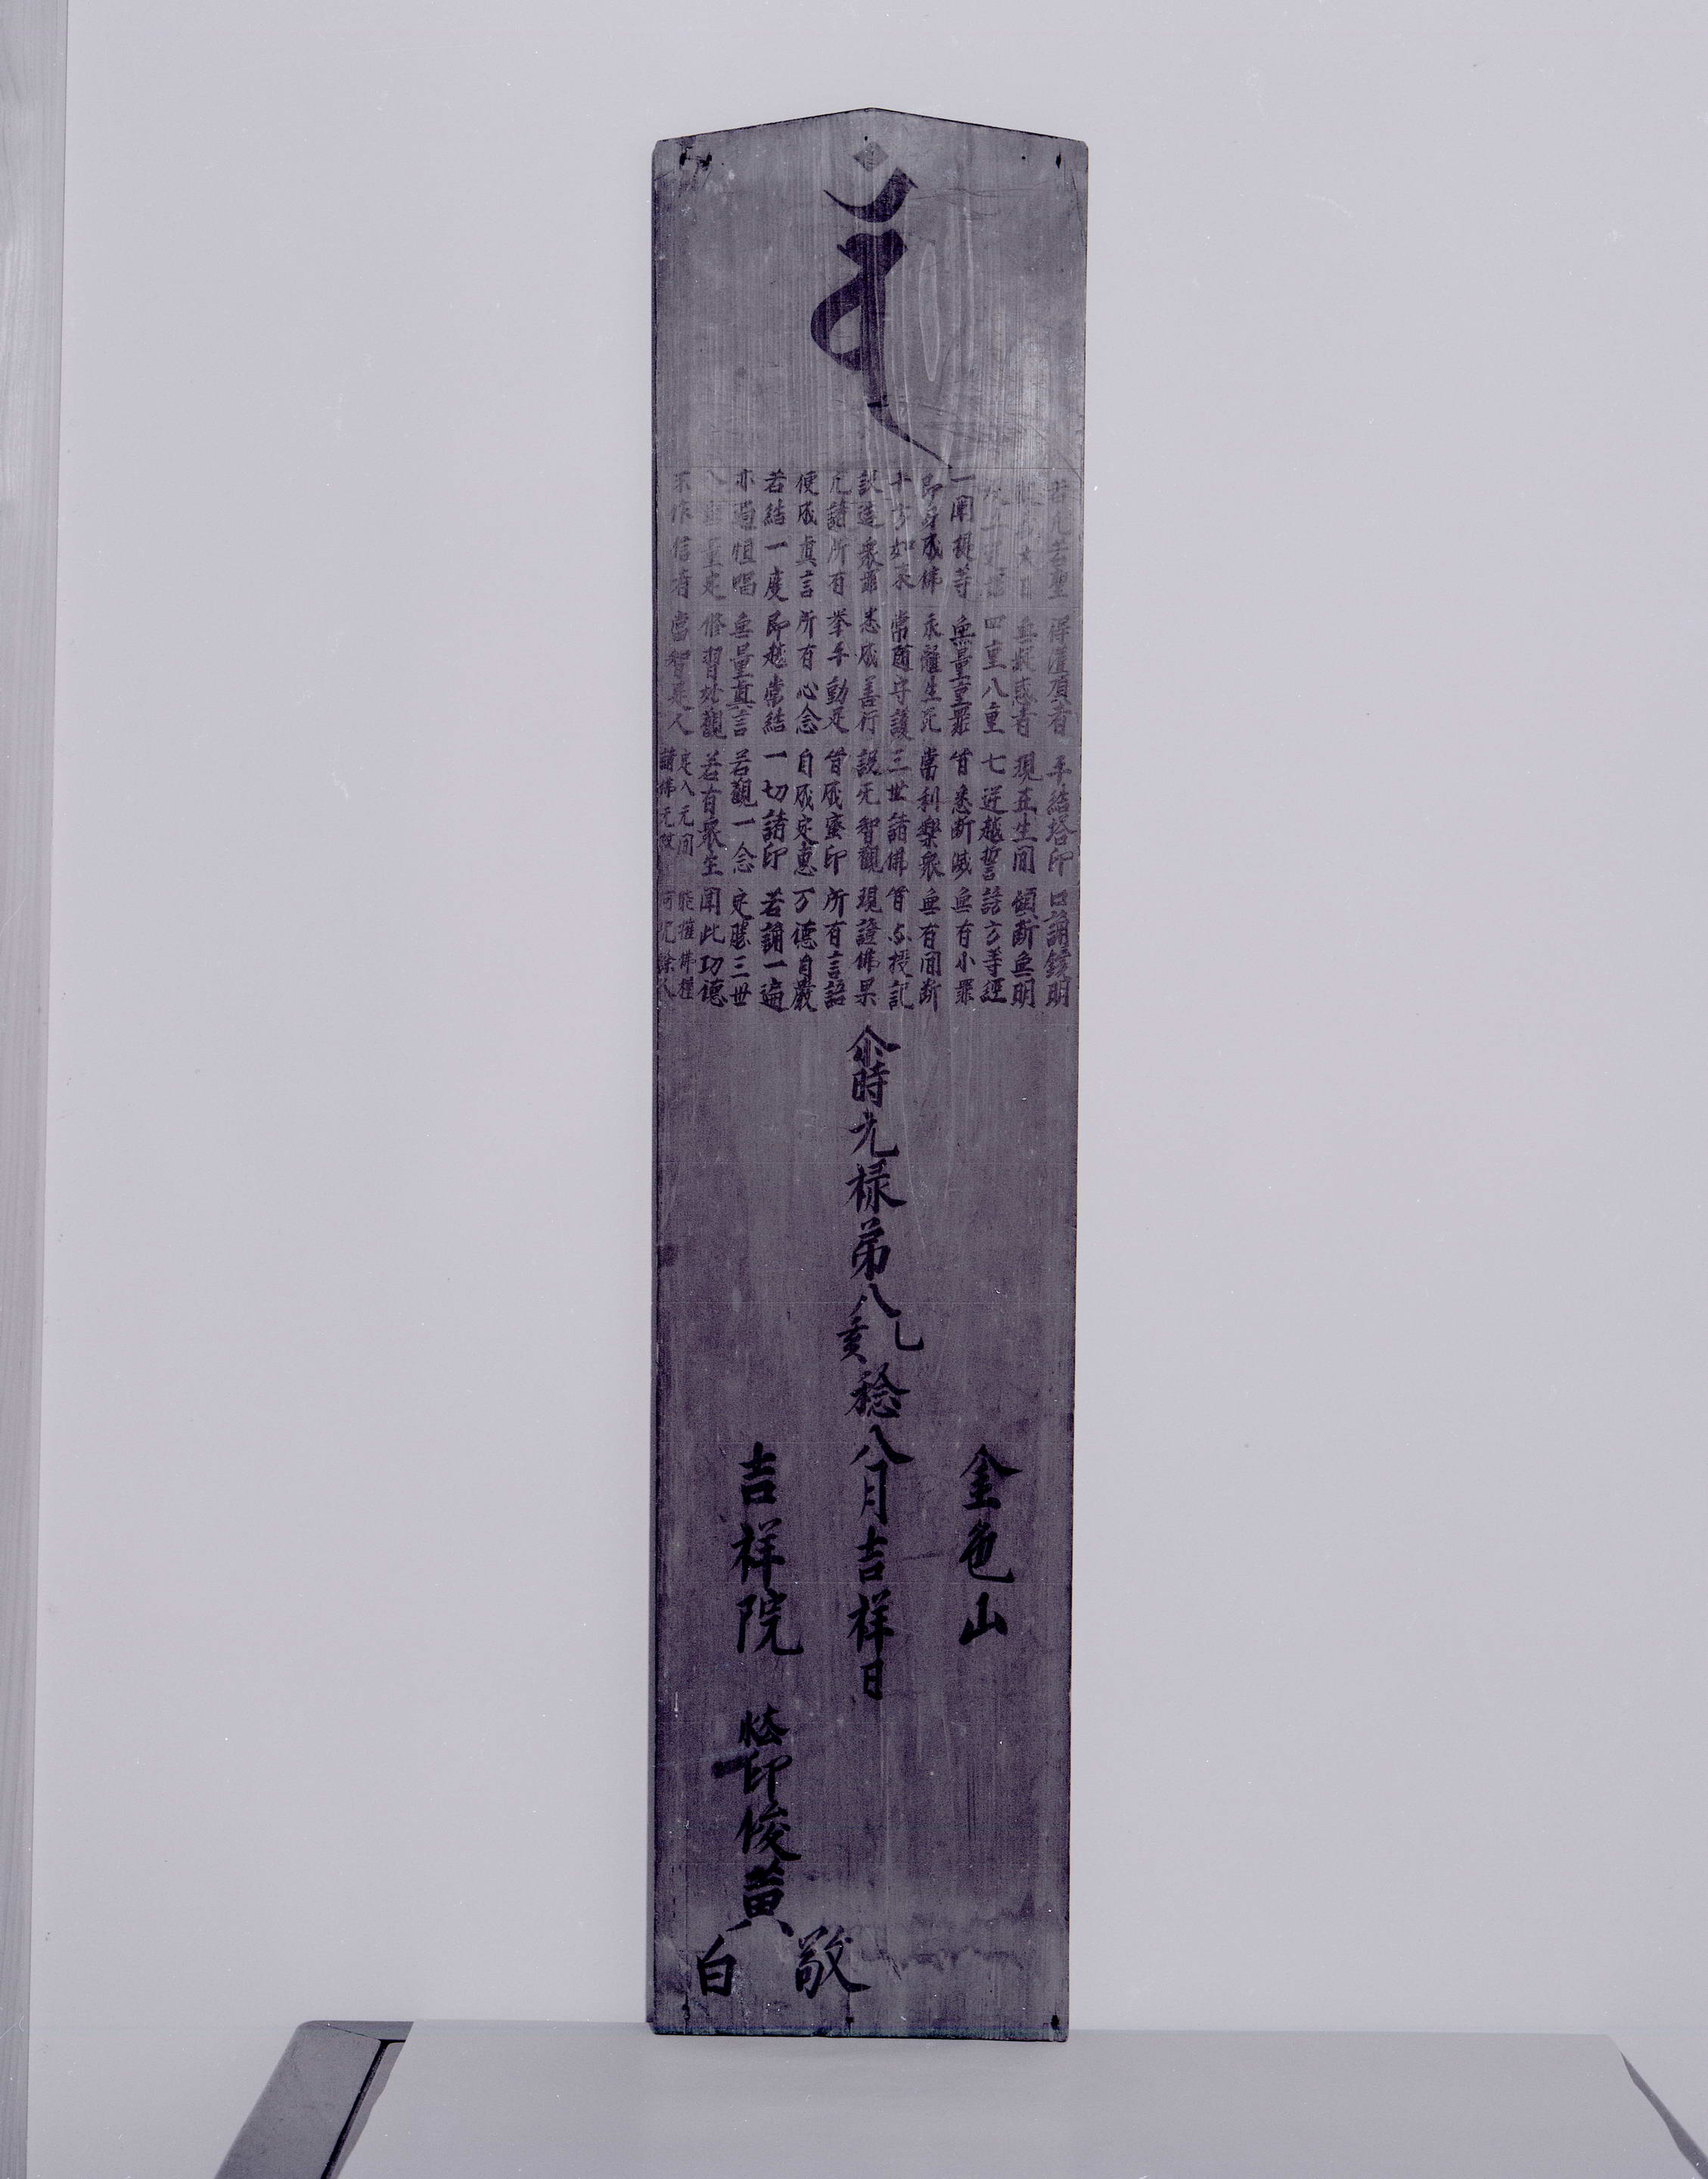 若凡若聖 得灌頂者 手結塔印 口誦鑁明
大日 無疑惑者 現在生間 頓断無明
四重八重 七逆越誓 謗方等經
一闡提等 無量重罪 皆悉断滅 無有小罪
即身成佛 永離生死 常利樂衆 無有間断
十方如来 常随守護 三世諸佛 皆与授記
設造衆罪 悉成善行 設无智觀 現證佛果
凡諸所有 挙手動足 皆成蜜印 所有言語
便成真言 所有心念 自成定恵 万徳自嚴
若結一度 即越常結 一切諸印 若誦一遍
亦過恒唱 無量真言 若觀一念 定勝三世
入無量定 修習妙觀 若有衆生 聞此功德
不作信者 當智是人 定入无間 能摧佛種
諸佛无救 何况餘人
金色山
尒時元禄第八乙亥稔八月吉祥日
吉祥院 法印俊黄
敬白